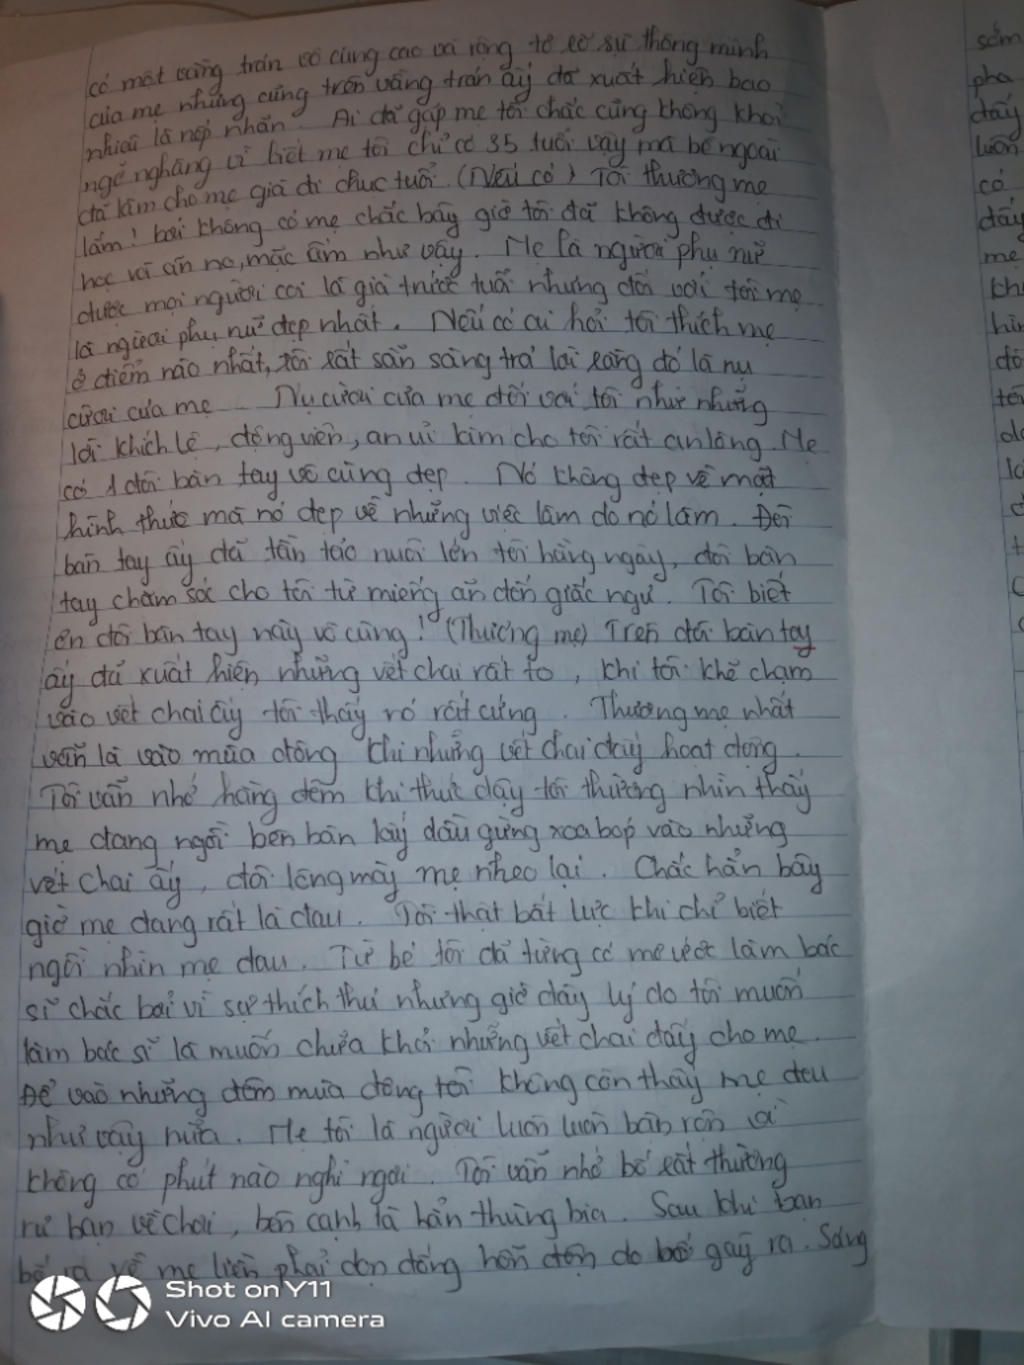 có một vầng trán vô cùng cao và rộng tỏ rõ sự thông minh
của mẹ nhưng cũng trên vầng trán ấy đã xuất hiện bao
nhiêu là nếp nhăn. Ai đã gặp mẹ tôi chắc cũng không khỏi
ngỡ nghàng vì biết mẹ tôi chỉ có 35 tuổi vậy mà bề ngoài
đã làm cho mẹ già đi chục tuổi. (Nếu có) Tôi thương mẹ
lắm! bởi không có mẹ chắc bây giờ tôi đã không được đi
học và ăn no, mặc ấm như vậy. Mẹ là người phụ nữ
được mọi người coi là già trước tuổi nhưng đối với tôi mẹ
là người phụ nữ đẹp nhất. Nếu có ai hỏi tôi thích mẹ
ở điểm nào nhất, tôi rất sẵn sàng trả lời rằng đó là nụ
cười của mẹ Nụ cười của mẹ đối với tôi như những
lời khích lệ, động viên, an ủi làm cho tôi rất an lòng. Mẹ
có 1 đôi bàn tay vô cùng đẹp. Nó không đẹp về mặt
hình thức mà nó đẹp về những việc làm do nó làm. Đôi
bàn tay ấy đã tần tảo nuôi lớn tôi hằng ngày, đôi bàn
tay chăm sóc cho tôi từ miếng ăn đến giấc ngủ. Tôi biết
ơn đôi bàn tay này vô cùng! (Thương mẹ) Trên đôi bàn tay
ấy đã xuất hiện những vết chai rất to, khi tôi khẽ chạm
vào vết chai ấy tôi thấy nó rất cứng. Thương mẹ nhất
vẫn là vào mùa đông khi những vết chai đấy hoạt động.
Tôi vẫn nhớ hằng đêm khi thức dậy tôi thường nhìn thấy
mẹ đang ngồi bên bàn lấy dầu gừng xoa bóp vào những
vết chai ấy, đôi lông mày mẹ nheo lại. Chắc hẳn bây
giờ mẹ đang rất là đau. Tôi thật bất lực khi chỉ biết
ngồi nhìn mẹ đau. Từ bé tôi đã từng có mơ ước làm bác
sĩ chắc bởi vì sự thích thú nhưng giờ đây lý do tôi muốn
làm bác sĩ là muốn chữa khỏi những vết chai đấy cho mẹ.
Để vào những đêm mùa đông tôi không còn thấy mẹ đau
như vậy nữa. Mẹ tôi là người luôn luôn bận rộn và
không có phút nào nghỉ ngơi. Tôi vẫn nhớ bố rất thường
rủ bạn về chơi, bên cạnh là hẳn thùng bia. Sau khi bạn
bố ra về mẹ liền phải dọn đống hỗn độn do bố gây ra. Sáng
sớm
pha
đấy
luôn
có
đấy
mẹ
Shot on Y11
Vivo AI camera